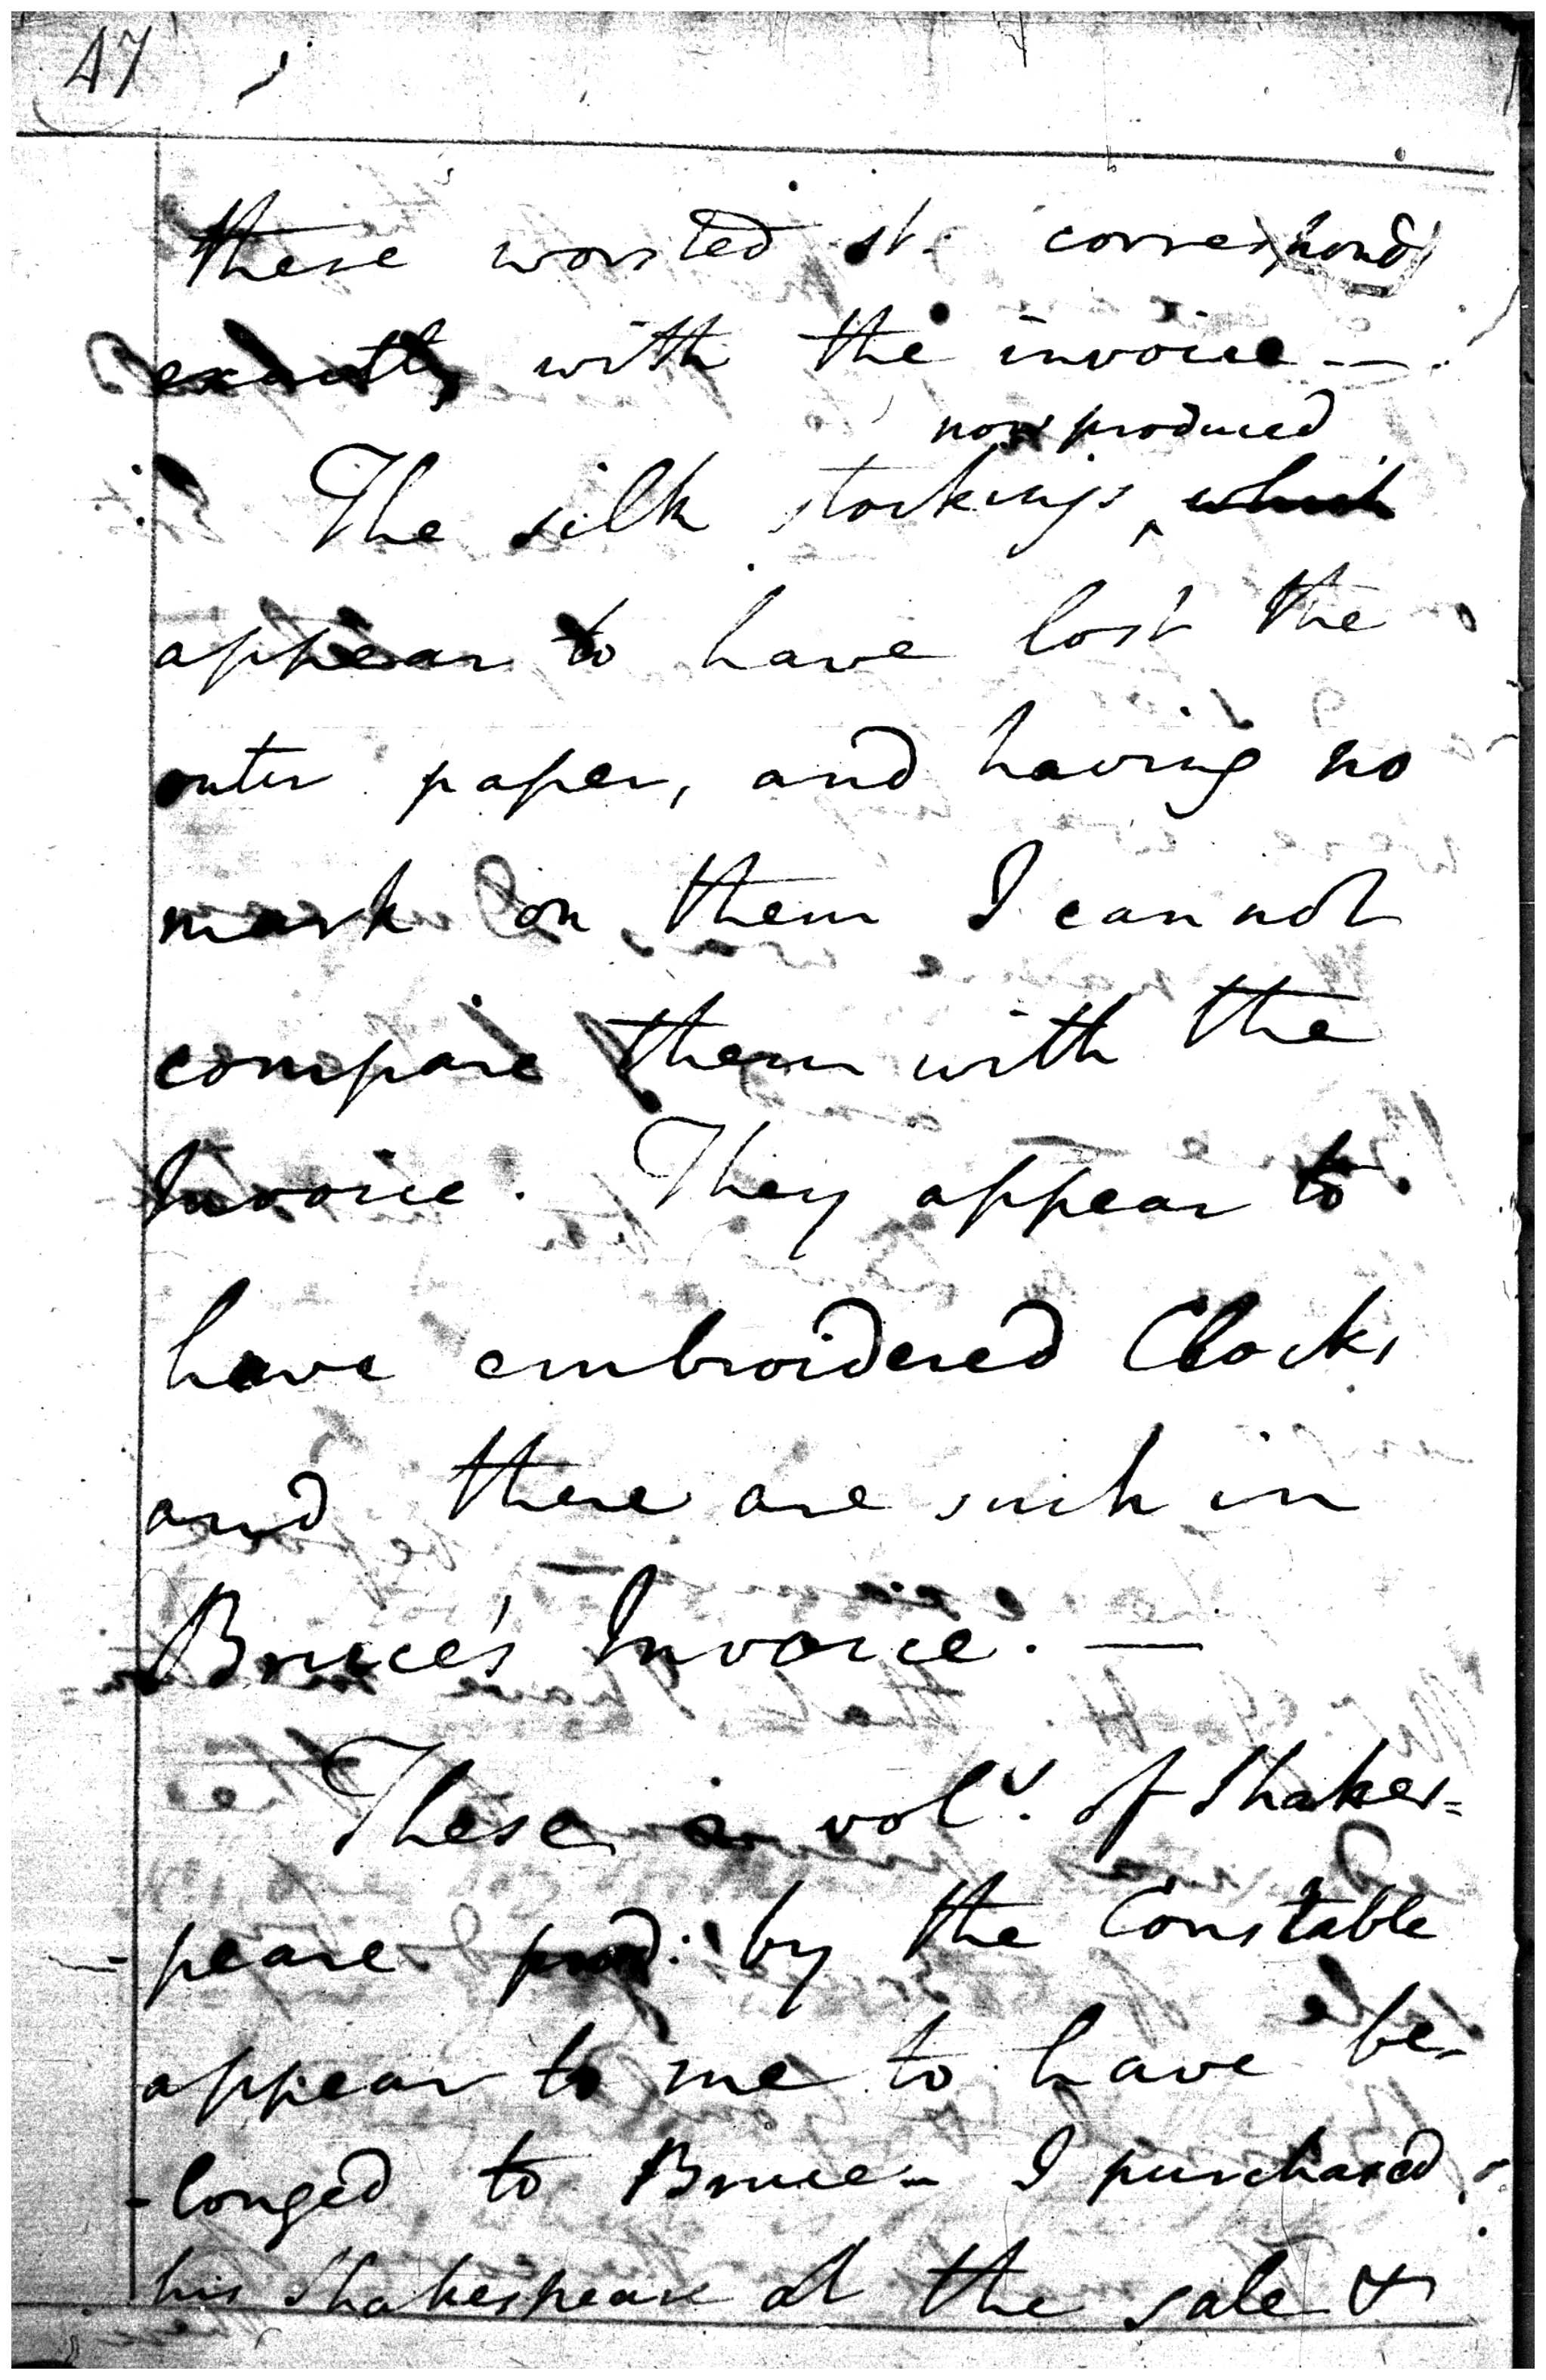 47
these worsted st. correspond
exactly with the invoice —
now produced
The silk stockings ^ which
appear to have lost the
outer paper, and having no
mark on them I cannot
compare them with the
Invoice. They appear to
have embroidered Clocks
and there are such in
Bruce's Invoice. —
These vols. of Shakes=
peare prod. by the Constable
appear to me to have be-
-longed to Bruce – I purchased
his Shakespeare at the sale &